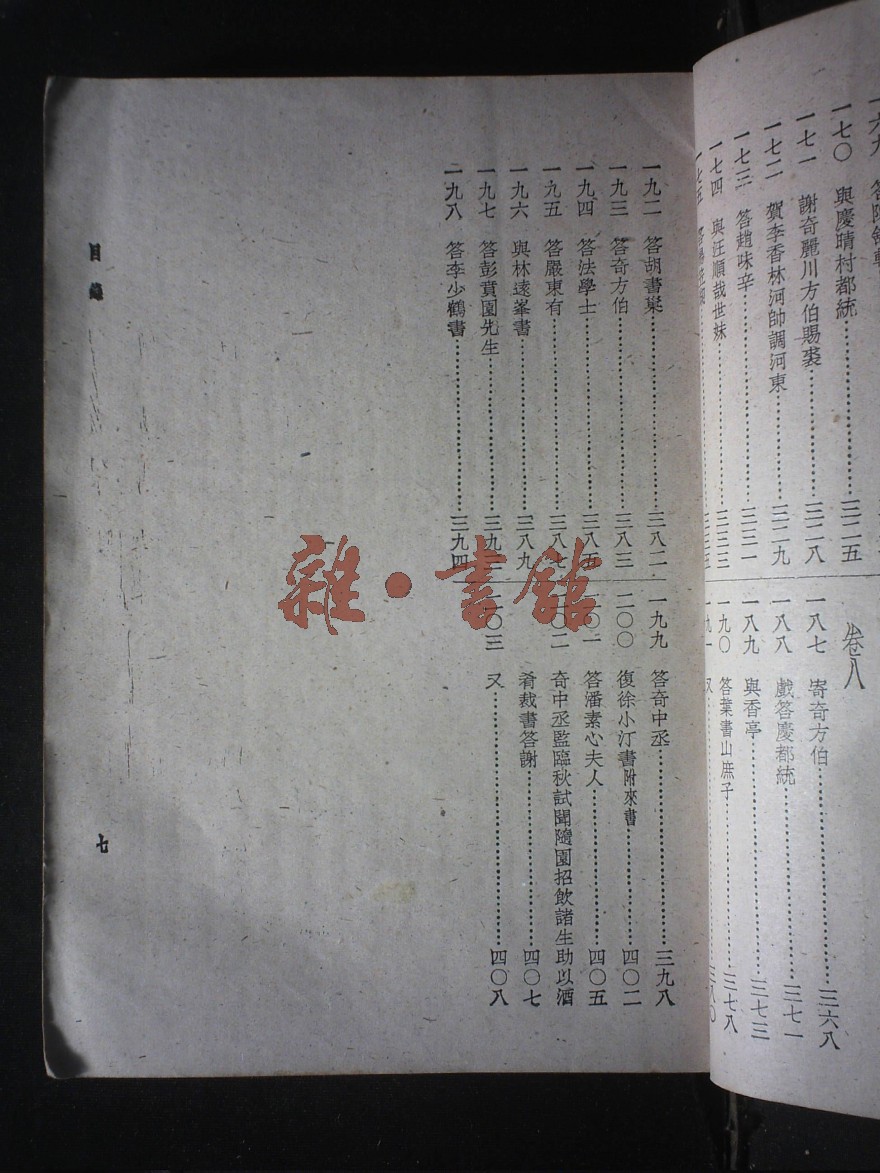 一七〇 與慶晴村都統 三二五
一七一 謝奇麗川方伯賜裘 三二八
一七二 賀李香林河帥調河東 三二九
一七三 答趙味辛 三三一
一七四 與汪順哉世妹 三三三
卷八
一八七 寄奇方伯 三六八
一八八 戲答慶都統 三七一
一八九 與香亭 三七三
一九〇 答葉書山庶子 三七八
又 三八〇
一九二 答胡書巢 三八二
一九三 答奇方伯 三八三
一九四 答法學士 三八五
一九五 答嚴東有 三八七
一九六 與林遠峯書 三八九
一九七 答彭賁園先生
一九八 答李少鶴書 三九四
一九九 答奇中丞 三九八
二〇〇 復徐小汀書附來書 四〇二
二〇一 答潘素心夫人 四〇五
二〇二 奇中丞監臨秋試聞隨園招飲諸生助以酒
肴裁書答謝 四〇七
二〇三 又 四〇八
目錄
七
雜·書館